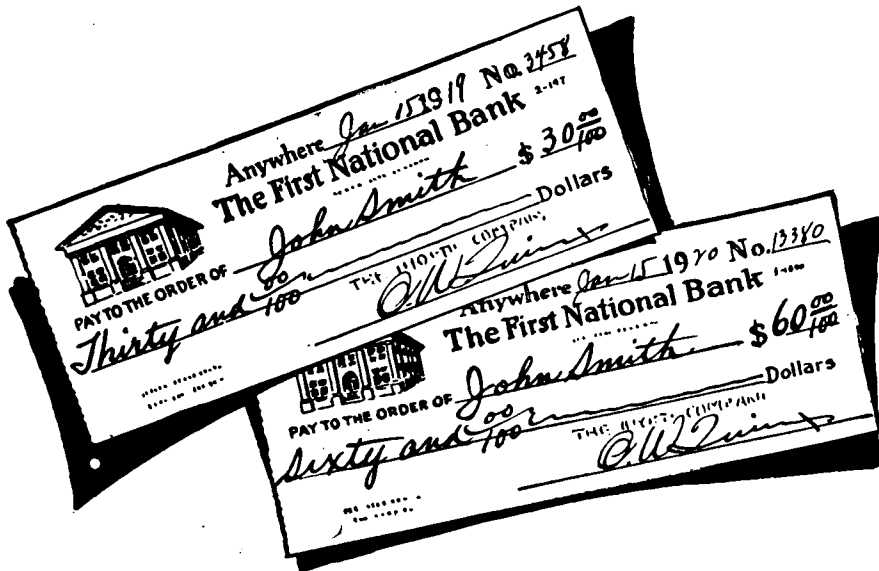 Anywhere Jan 15 1919 No. 3458
The First National Bank 2-197
PAY TO THE ORDER OF John Smith $ 30 00/100
Thirty and 00/100 Dollars
THE COMPANY
Anywhere Jan 15 1920 No. 13380
The First National Bank
PAY TO THE ORDER OF John Smith $ 60 00/100
Sixty and 00/100 Dollars
THE COMPANY